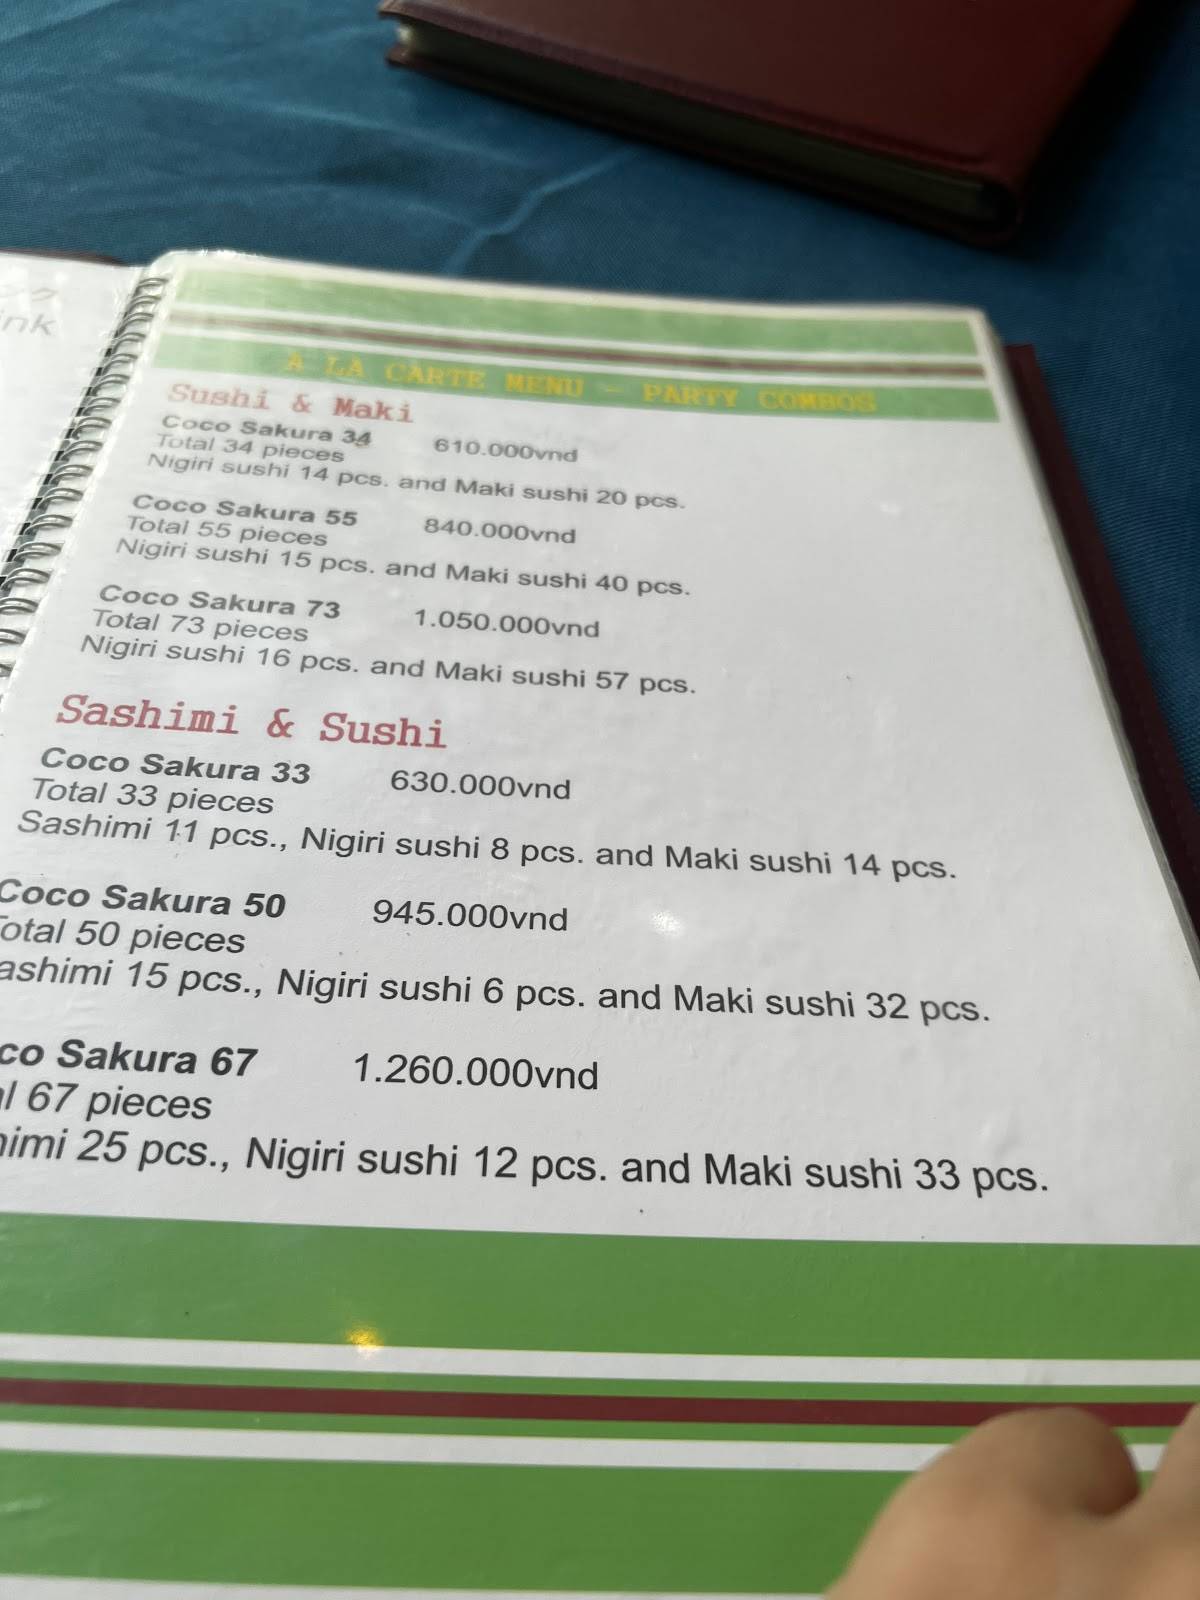 ink
A LA CARTE MENU - PARTY COMBOS
Sushi & Maki
Coco Sakura 34 610.000vnd
Total 34 pieces
Nigiri sushi 14 pcs. and Maki sushi 20 pcs.
Coco Sakura 55 840.000vnd
Total 55 pieces
Nigiri sushi 15 pcs. and Maki sushi 40 pcs.
Coco Sakura 73 1.050.000vnd
Total 73 pieces
Nigiri sushi 16 pcs. and Maki sushi 57 pcs.
Sashimi & Sushi
Coco Sakura 33 630.000vnd
Total 33 pieces
Sashimi 11 pcs., Nigiri sushi 8 pcs. and Maki sushi 14 pcs.
Coco Sakura 50 945.000vnd
Total 50 pieces
ashimi 15 pcs., Nigiri sushi 6 pcs. and Maki sushi 32 pcs.
co Sakura 67 1.260.000vnd
al 67 pieces
himi 25 pcs., Nigiri sushi 12 pcs. and Maki sushi 33 pcs.